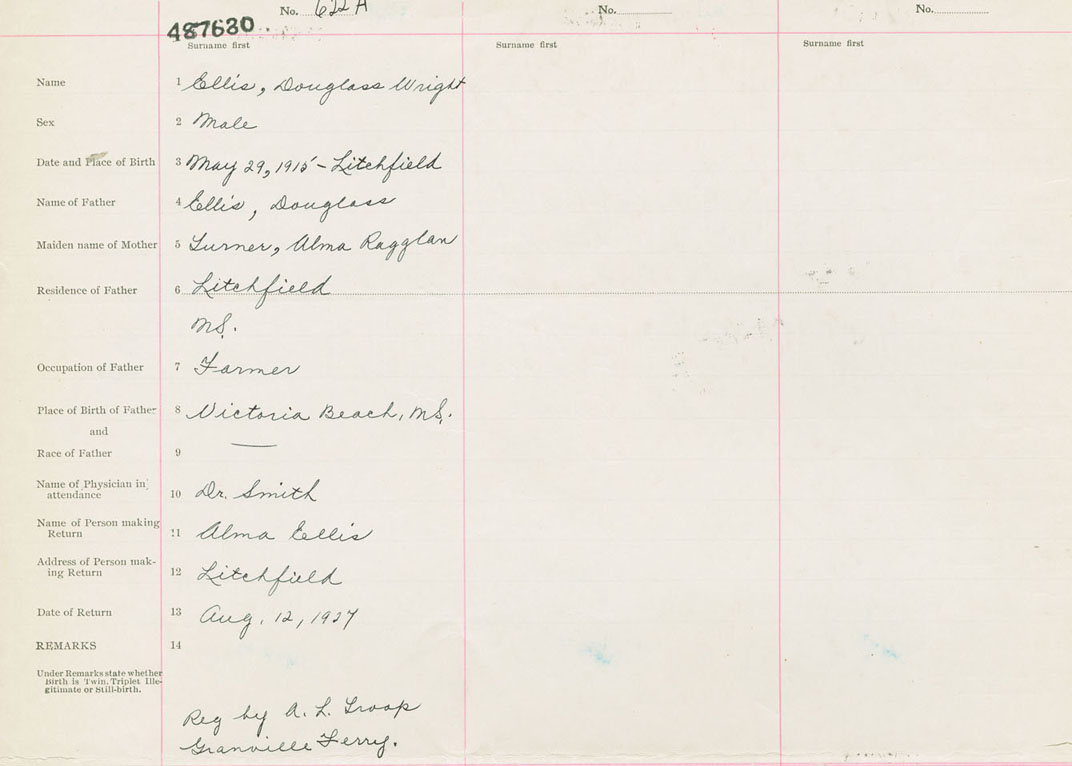 No. 622A
No.
No.
487630
Surname first
Surname first
Surname first
Name 1 Ellis, Douglass Wright
Sex 2 Male
Date and Place of Birth 3 May 29, 1915 - Litchfield
Name of Father 4 Ellis, Douglass
Maiden name of Mother 5 Turner, Alma Ragglan
Residence of Father 6 Litchfield
N.S.
Occupation of Father 7 Farmer
Place of Birth of Father 8 Victoria Beach, N.S.
and
Race of Father 9 —
Name of Physician in
attendance 10 Dr. Smith
Name of Person making
Return 11 Alma Ellis
Address of Person mak-
ing Return 12 Litchfield
Date of Return 13 Aug. 12, 1927
REMARKS 14
Under Remarks state whether
Birth is Twin, Triplet Ille-
gitimate or Still-birth.
Reg by A. L. Troop
Granville Ferry.